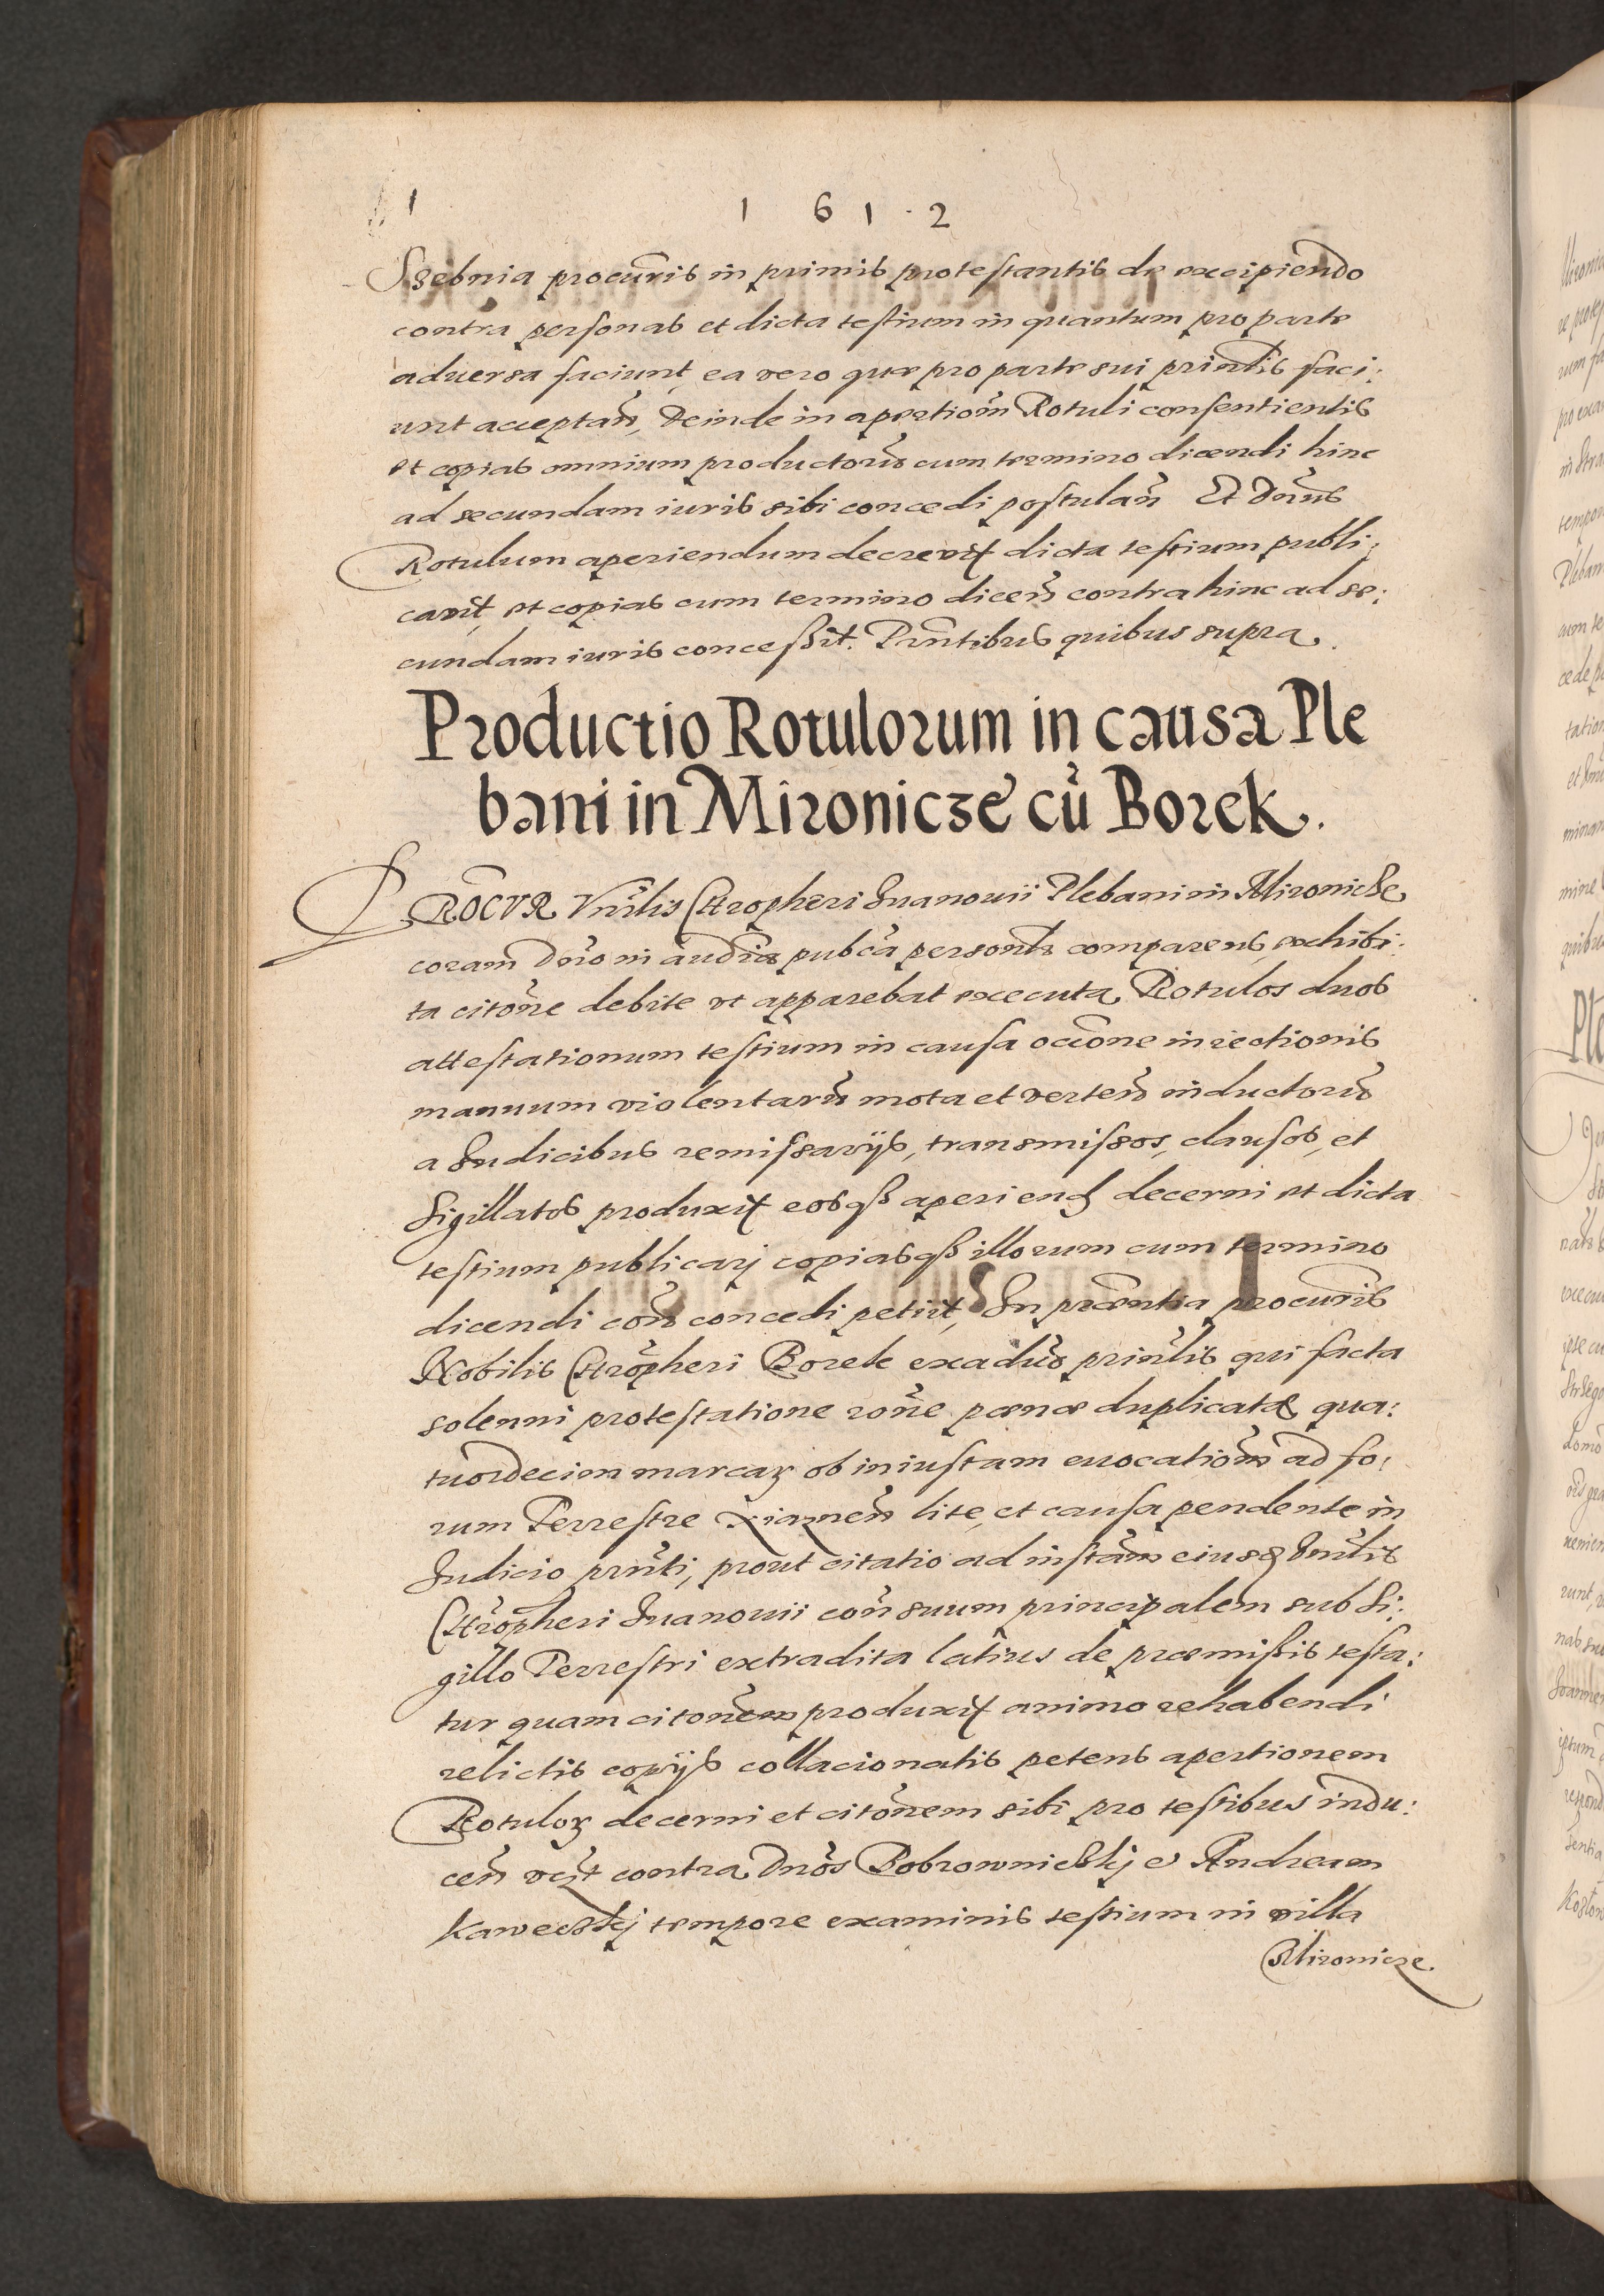 1 6 1 2
Szebnia procuris in primis protestantis de excipiendo
contra personas et dicta testium in quantum pro parte
adversa faciunt, ea vero quæ pro parte sui prinlis faci:
unt acceptan, Deinde in apertiom Rotuli consentientis
et copias omnium productoru cum termino dicendi hinc
ad secundam iuris sibi concedi postulan Et Dnus
Rotulum aperiendum decrevit dicta testium publi:
cavit, et copias cum termino dicen contra hinc ad se:
cundam iuris concessit. Pnntibus quibus supra.
Productio Rotulorum in causa Ple
bani in Mironicze cu Borek.
PROCUR Vnrlis Chropheri Iuanouii Plebani in Mironicze
coram Dno in audia pubca personlr comparens, exhibi:
ta citone debite ut apparebat executa Rotulos duos
attestationum testium in causa occone iniectionis
manuum violentaru mota et verten inductoru
a Iudicibus remissarijs, transmissos, clausos, et
Sigillatos produxit eosqß aperiend decerni et dicta
testium publicarj copiasqß illorum cum termino
dicendi con concedi petiit, In præntia procuris
Nobilis Chropheri Borek ex aduo prinlis qui facta
solenni protestatione rone pœnæ duplicatæ qua:
tuordecim marcaꝝ ob iniustam euocatiom ad fo:
rum Terrestre Xiaznen lite, et causa pendente in
Iudicio prnti, prout citatio ad instam eiusd Vnrlis
Chropheri Iuanouii con suum principalem sub Si:
gillo Terrestri extradita latius de præmissis testa:
tur quam citonem produxit animo rehabendi
relictis copijs collacionatis petens apertionem
Rotuloꝝ decerni et citonem sibi pro testibus indu:
cen vczt contra Dnos Bobrownickij et Andream
Kaweczkj tempore examinis testium in villa
Mironicze.